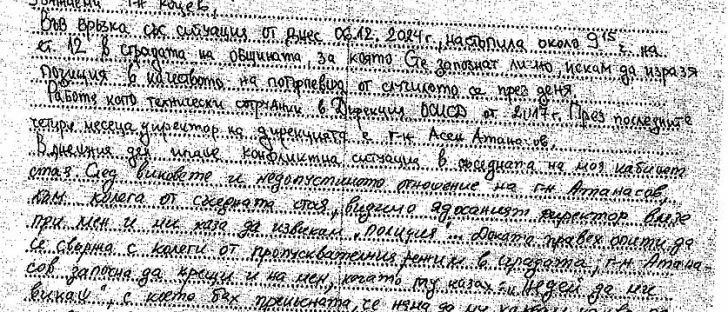 Уважаеми г-н Коцев,
Във връзка със ситуация от днес 06.12.2024г., настъпила около 9¹⁵ ч. на
ет. 12 в сградата на общината, за която сте запознат лично, искам да изразя
позиция в качеството на потърпевша от случилото се през деня.
Работя като технически сътрудник в Дирекция от 2017г. През последните
четири месеца директор на дирекцията е г-н Асен Атанасов.
В днешния ден имаше конфликтна ситуация в съседната на моя кабинет
стая. След виковете и недопустимото отношение на г-н Атанасов,
към колега от съседната стая, видимо ядосаният директор влезе
при мен и ми каза да извикам „полиция“. Докато правех опити да
се свържа с колеги от пропускателния режим в сградата, г-н Атана-
сов започна да крещи и на мен, когато му казах: „Недей да ми
викаш“, с което бях прекъсната, че няма да му